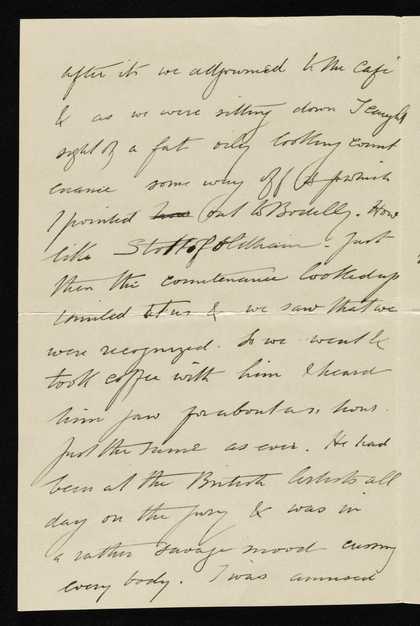 after its we adjourned to the Café
& as we were sitting down I caught
sight of a fat oily looking count
enance some way off which
I pointed out to Bodelly. How
like Stott of Oldham. Just
then the countenance looked up
smiled at us & we saw that we
were recognized. So we went &
took coffee with him & heard
him jaw for about an hour
just the same as ever. He had
been at the British Artists all
day on the jury & was in
a rather savage mood cursing
every body. I was amused